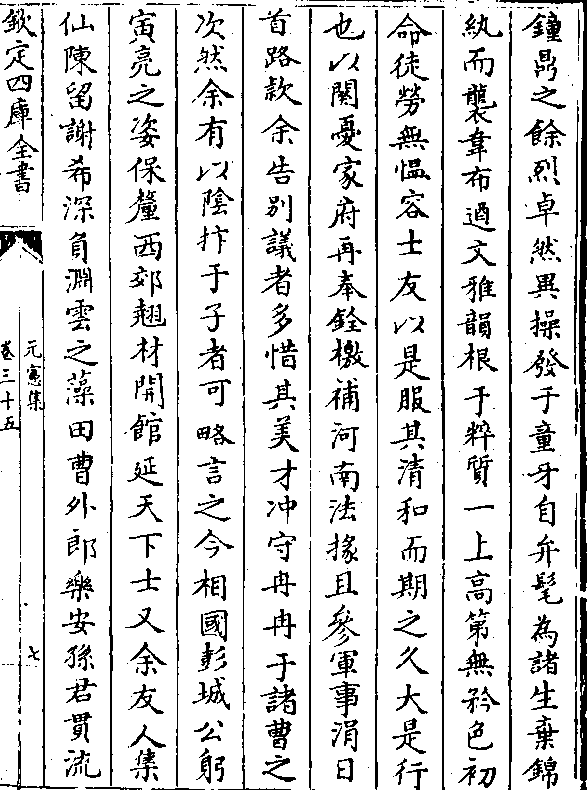 鐘鼎之餘烈卓然異操發于童牙自弁髦為諸生棄錦
紈而襲韋布遒文雅韻根于粹質一上高第無矜色初
命徒勞無慍容士友以是服其清和而期之久大是行
也以閡憂家府再奉銓檄補河南法掾且參軍事涓日
首路款余告別議者多惜其美才冲守冉冉于諸曹之
次然余有以陰抃于子者可略言之今相國彭城公躬
寅亮之姿保釐西郊翹材開館延天下士又余友人集
仙陳留謝希深負淵雲之藻田曹外郎樂安孫君貫流
欽定四庫全書
元憲集
卷三十五
七